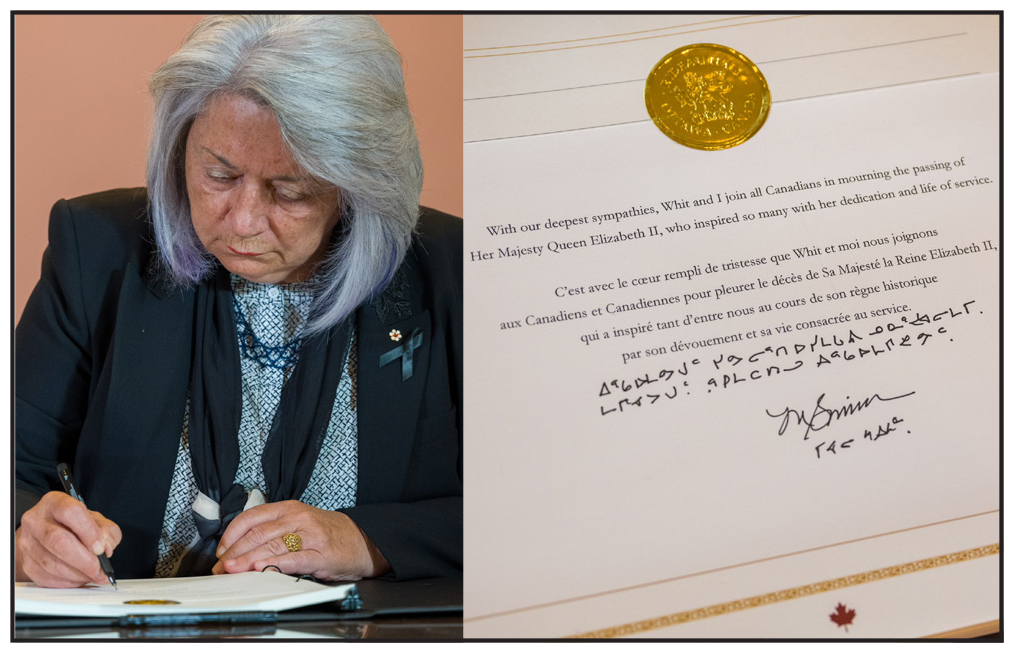 RIDEAU HALL
OTTAWA · CANADA
With our deepest sympathies, Whit and I join all Canadians in mourning the passing of
Her Majesty Queen Elizabeth II, who inspired so many with her dedication and life of service.
C'est avec le cœur rempli de tristesse que Whit et moi nous joignons
aux Canadiens et Canadiennes pour pleurer le décès de Sa Majesté la Reine Elizabeth II,
qui a inspiré tant d'entre nous au cours de son règne historique
par son dévouement et sa vie consacrée au service.
M Simon